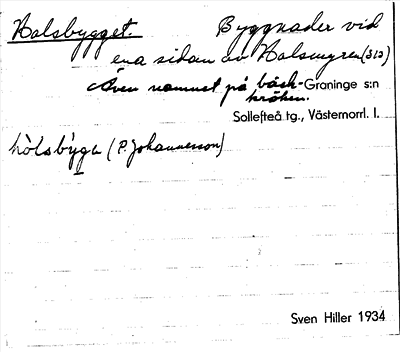 Holsbygget. Byggnader vid
ena sidan av Holsmyren (515)
Även namnet på bäck-Graninge s:n
kröken.
Sollefteå tg., Västernorrl. l.
hòlsby̆ga (P. Johannesson)
Sven Hiller 1934